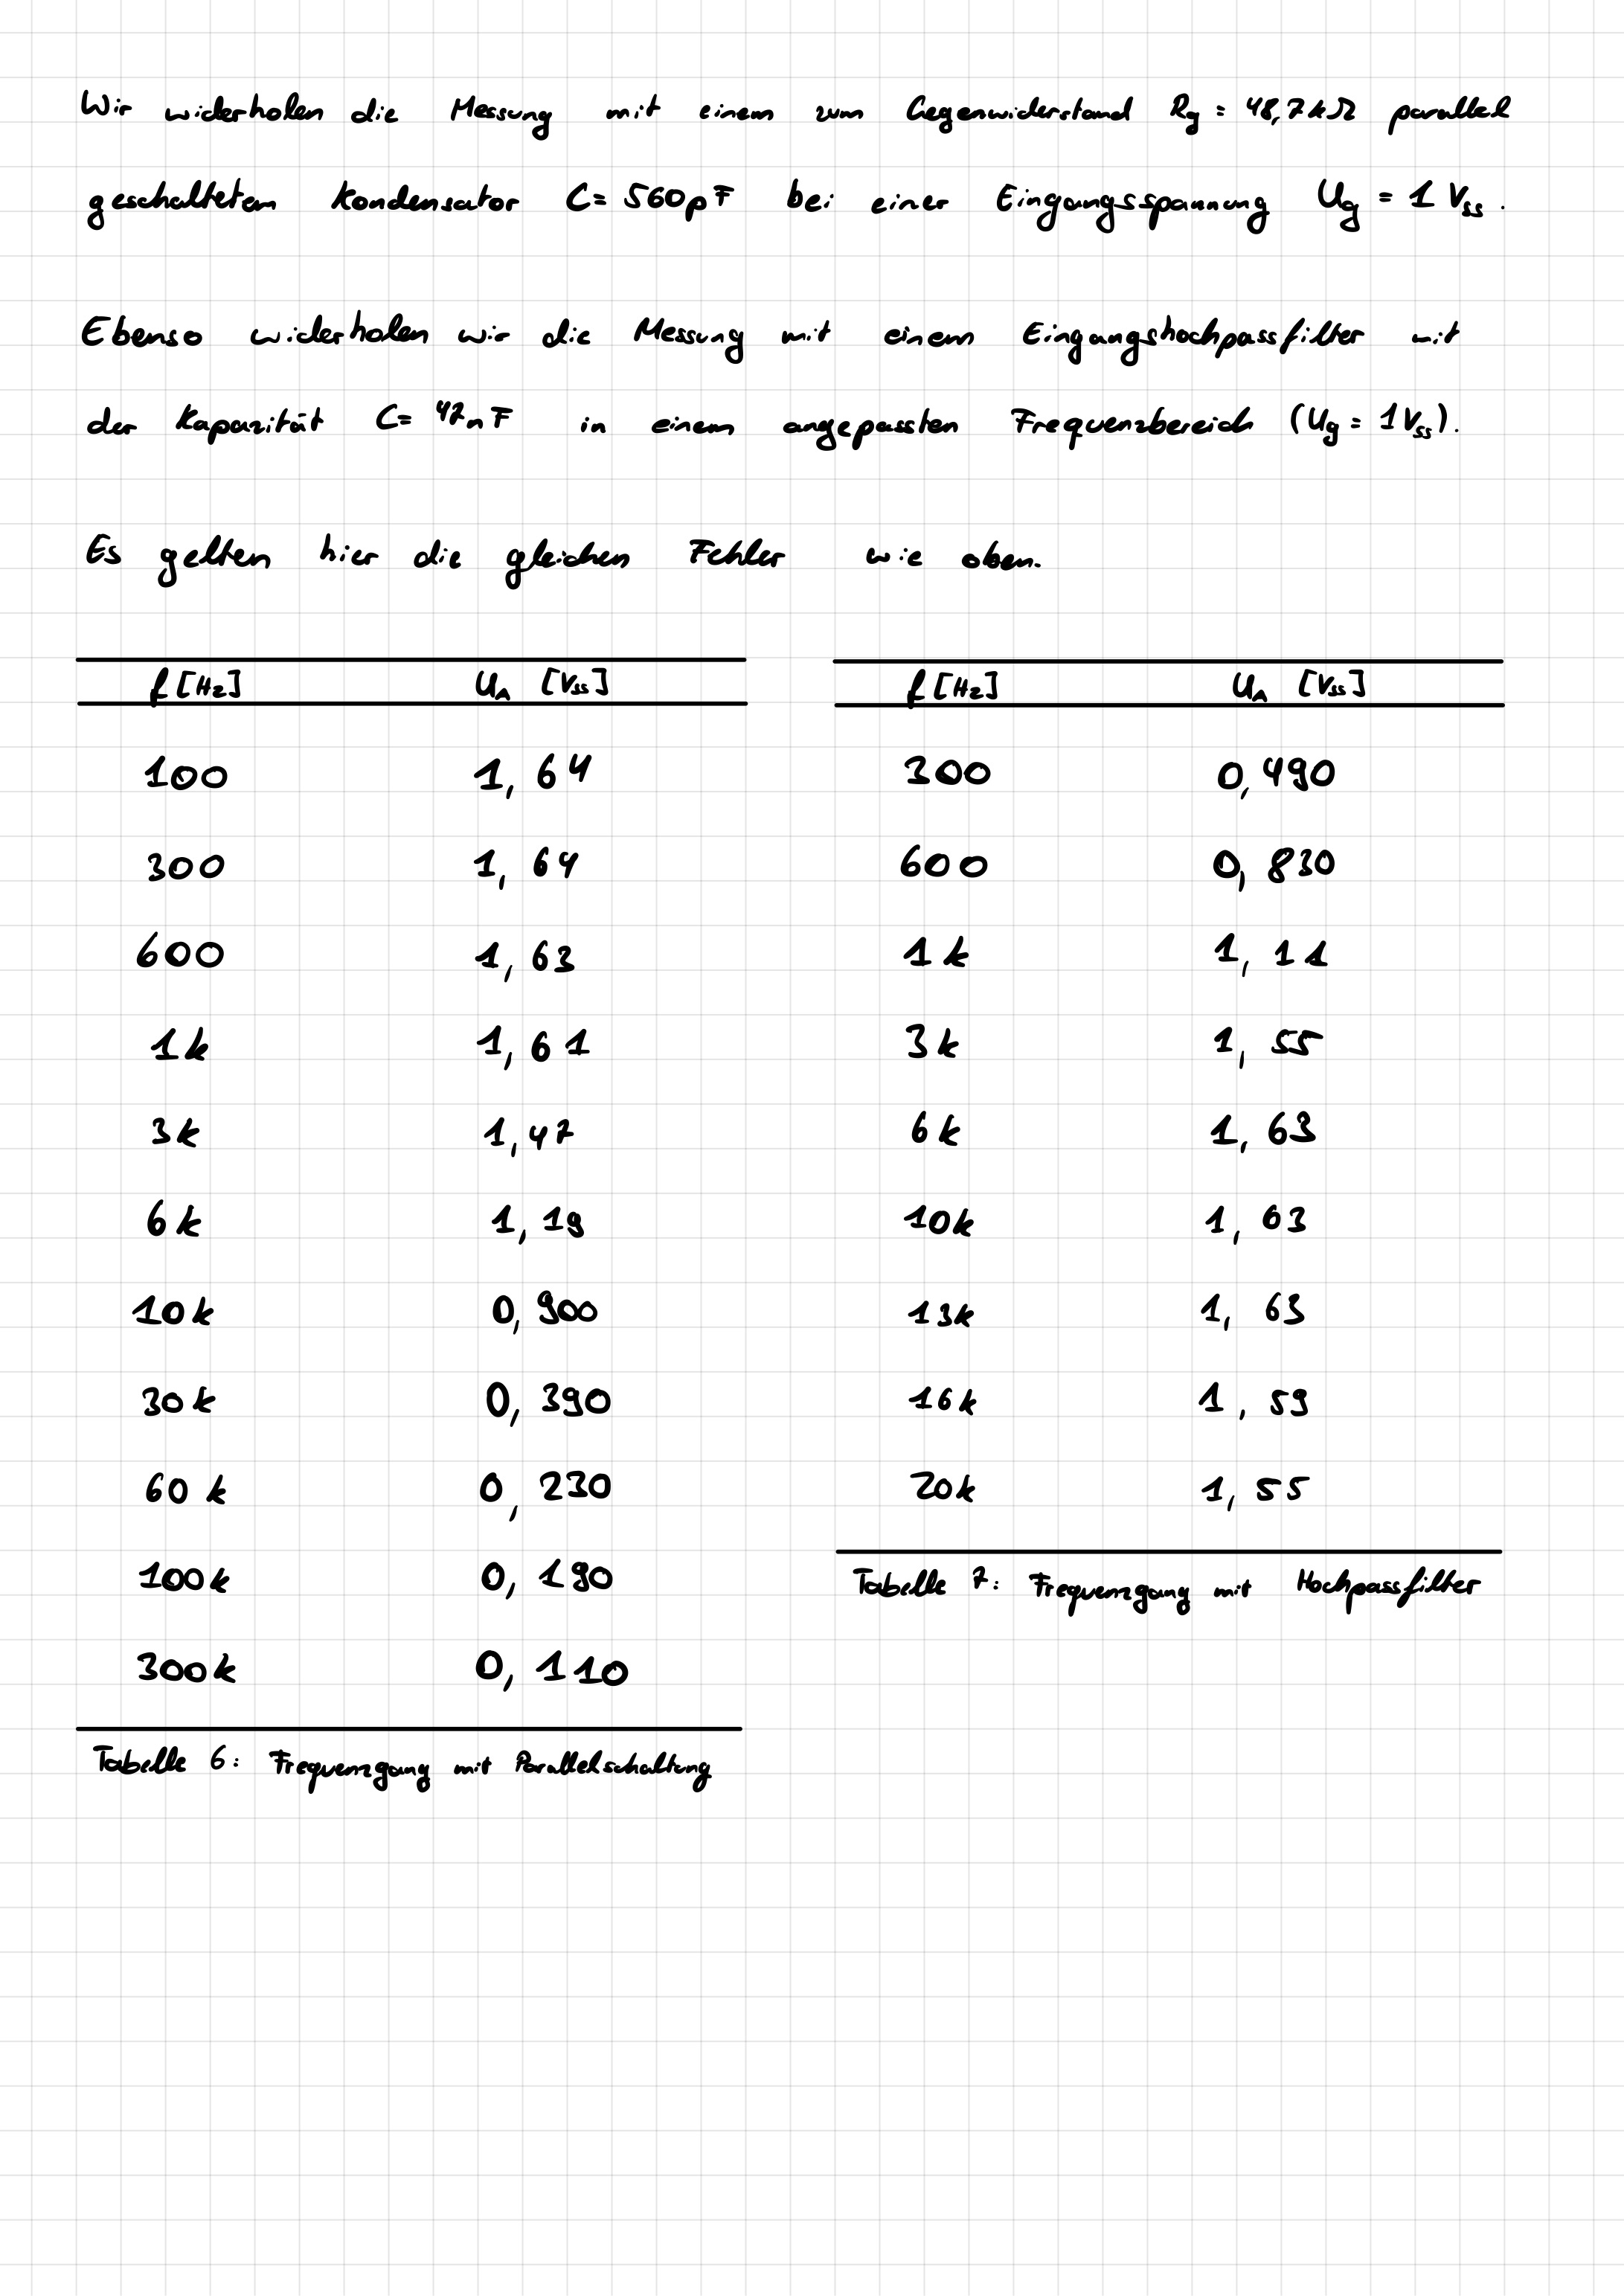 Wir widerholen die Messung mit einem zum Gegenwiderstand Rg = 48,7kΩ parallel
geschaltetem Kondensator C= 560pF bei einer Eingangsspannung Ug = 1 Vss.
Ebenso widerholen wir die Messung mit einem Eingangshochpassfilter mit
der Kapazität C= 47nF in einem angepassten Frequenzbereich (Ug = 1Vss).
Es gelten hier die gleichen Fehler wie oben.
f [Hz] UA [Vss]
100 1,64
300 1,64
600 1,63
1k 1,61
3k 1,47
6k 1,19
10k 0,900
30k 0,390
60k 0,230
100k 0,190
300k 0,110
Tabelle 6: Frequenzgang mit Parallelschaltung
f [Hz] UA [Vss]
300 0,490
600 0,830
1k 1,11
3k 1,55
6k 1,63
10k 1,63
13k 1,63
16k 1,59
20k 1,55
Tabelle 7: Frequenzgang mit Hochpassfilter